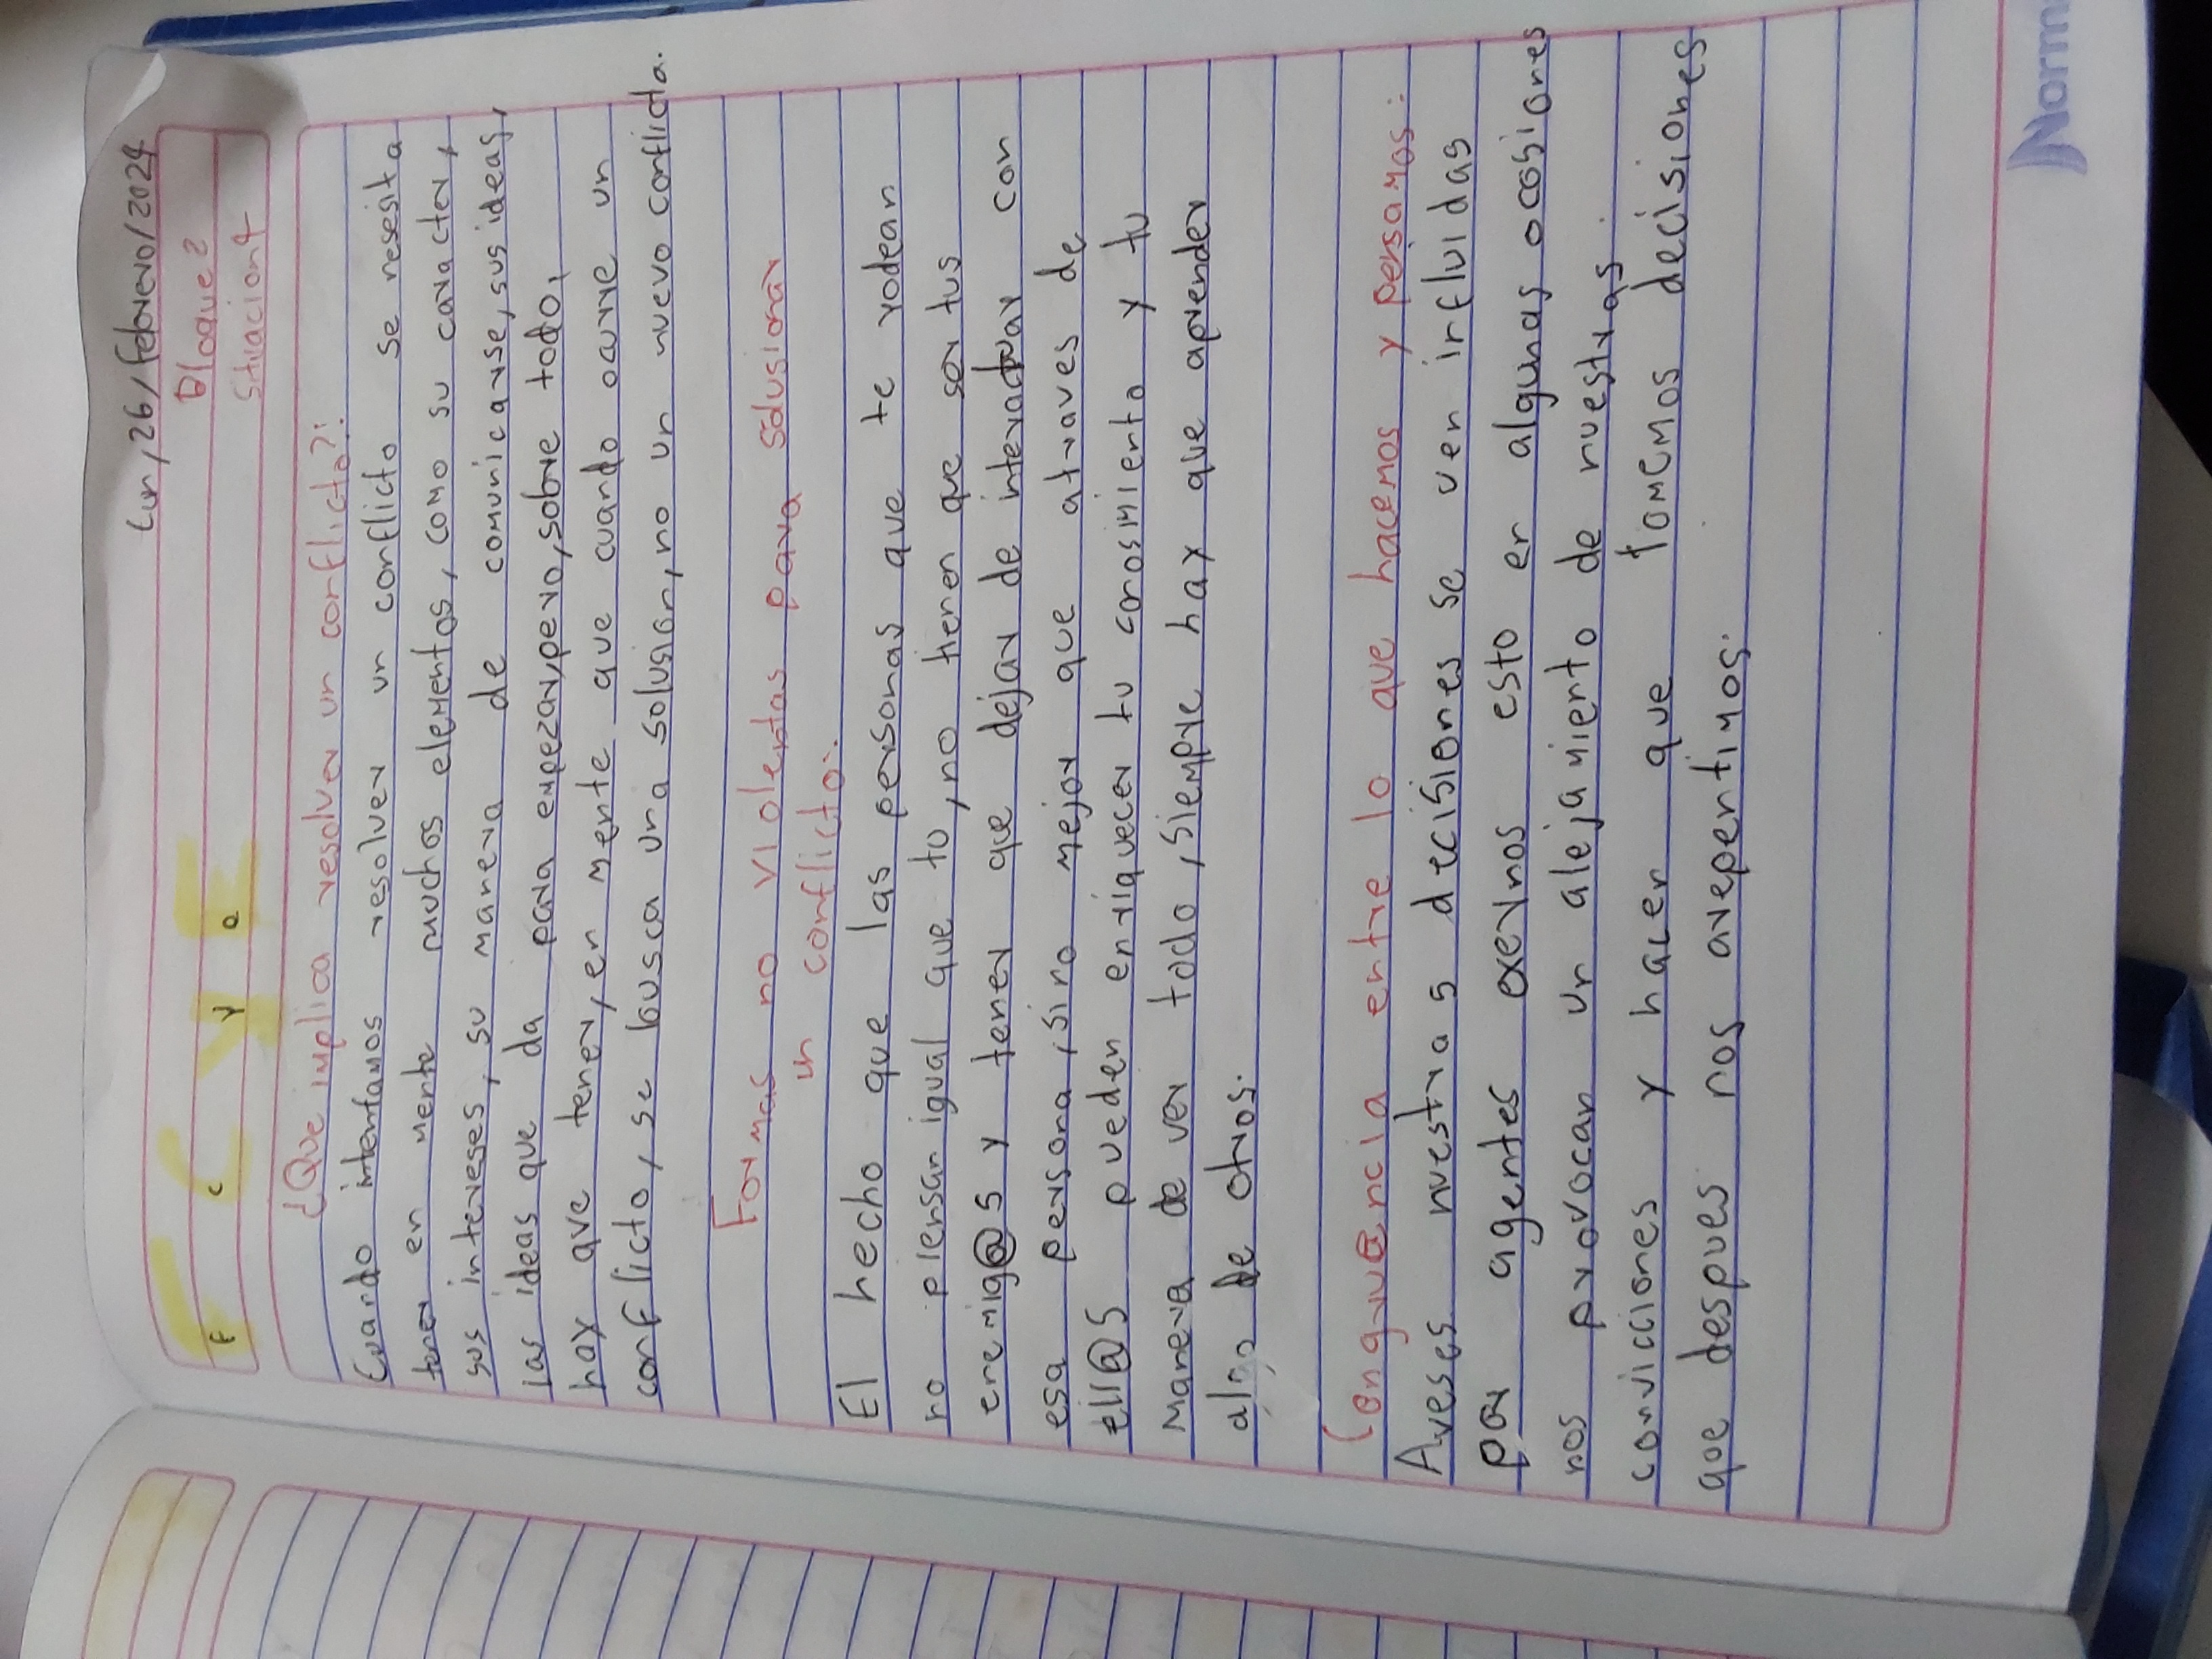 Lun, 26/febrero/2024
F C y E
F c y e
Bloque 2
Situacion 4
¿Que implica resolver un conflicto?:
Cuando intentamos resolver un conflicto se nesesita
tener en mente muchos elementos, como su caracter,
sus intereses, su manera de comunicarse, sus ideas,
las ideas que da para empezar, pero, sobre todo,
hay que tener, en mente que cuando ocurre un
conflicto, se busca una solusion, no un nuevo conflicto.
Formas no violentas para solusionar
un conflicto:
El hecho que las personas que te rodean
no piensan igual que tu, no tienen que ser tus
enemig@s y tener que dejar de interactuar con
esa persona, sino mejor que atraves de
ell@s pueden enriquecer tu conosimiento y tu
manera de ver todo, siempre hay que aprender
algo de otros.
Congruencia entre lo que hacemos y pensamos:
Aveses nuestras decisiones se ven influidas
por agentes exernos esto en algunas ocasiones
nos provocan un alejamiento de nuestras
convicciones y hacen que tomemos decisiones
que despues nos arepentimos.
Norm